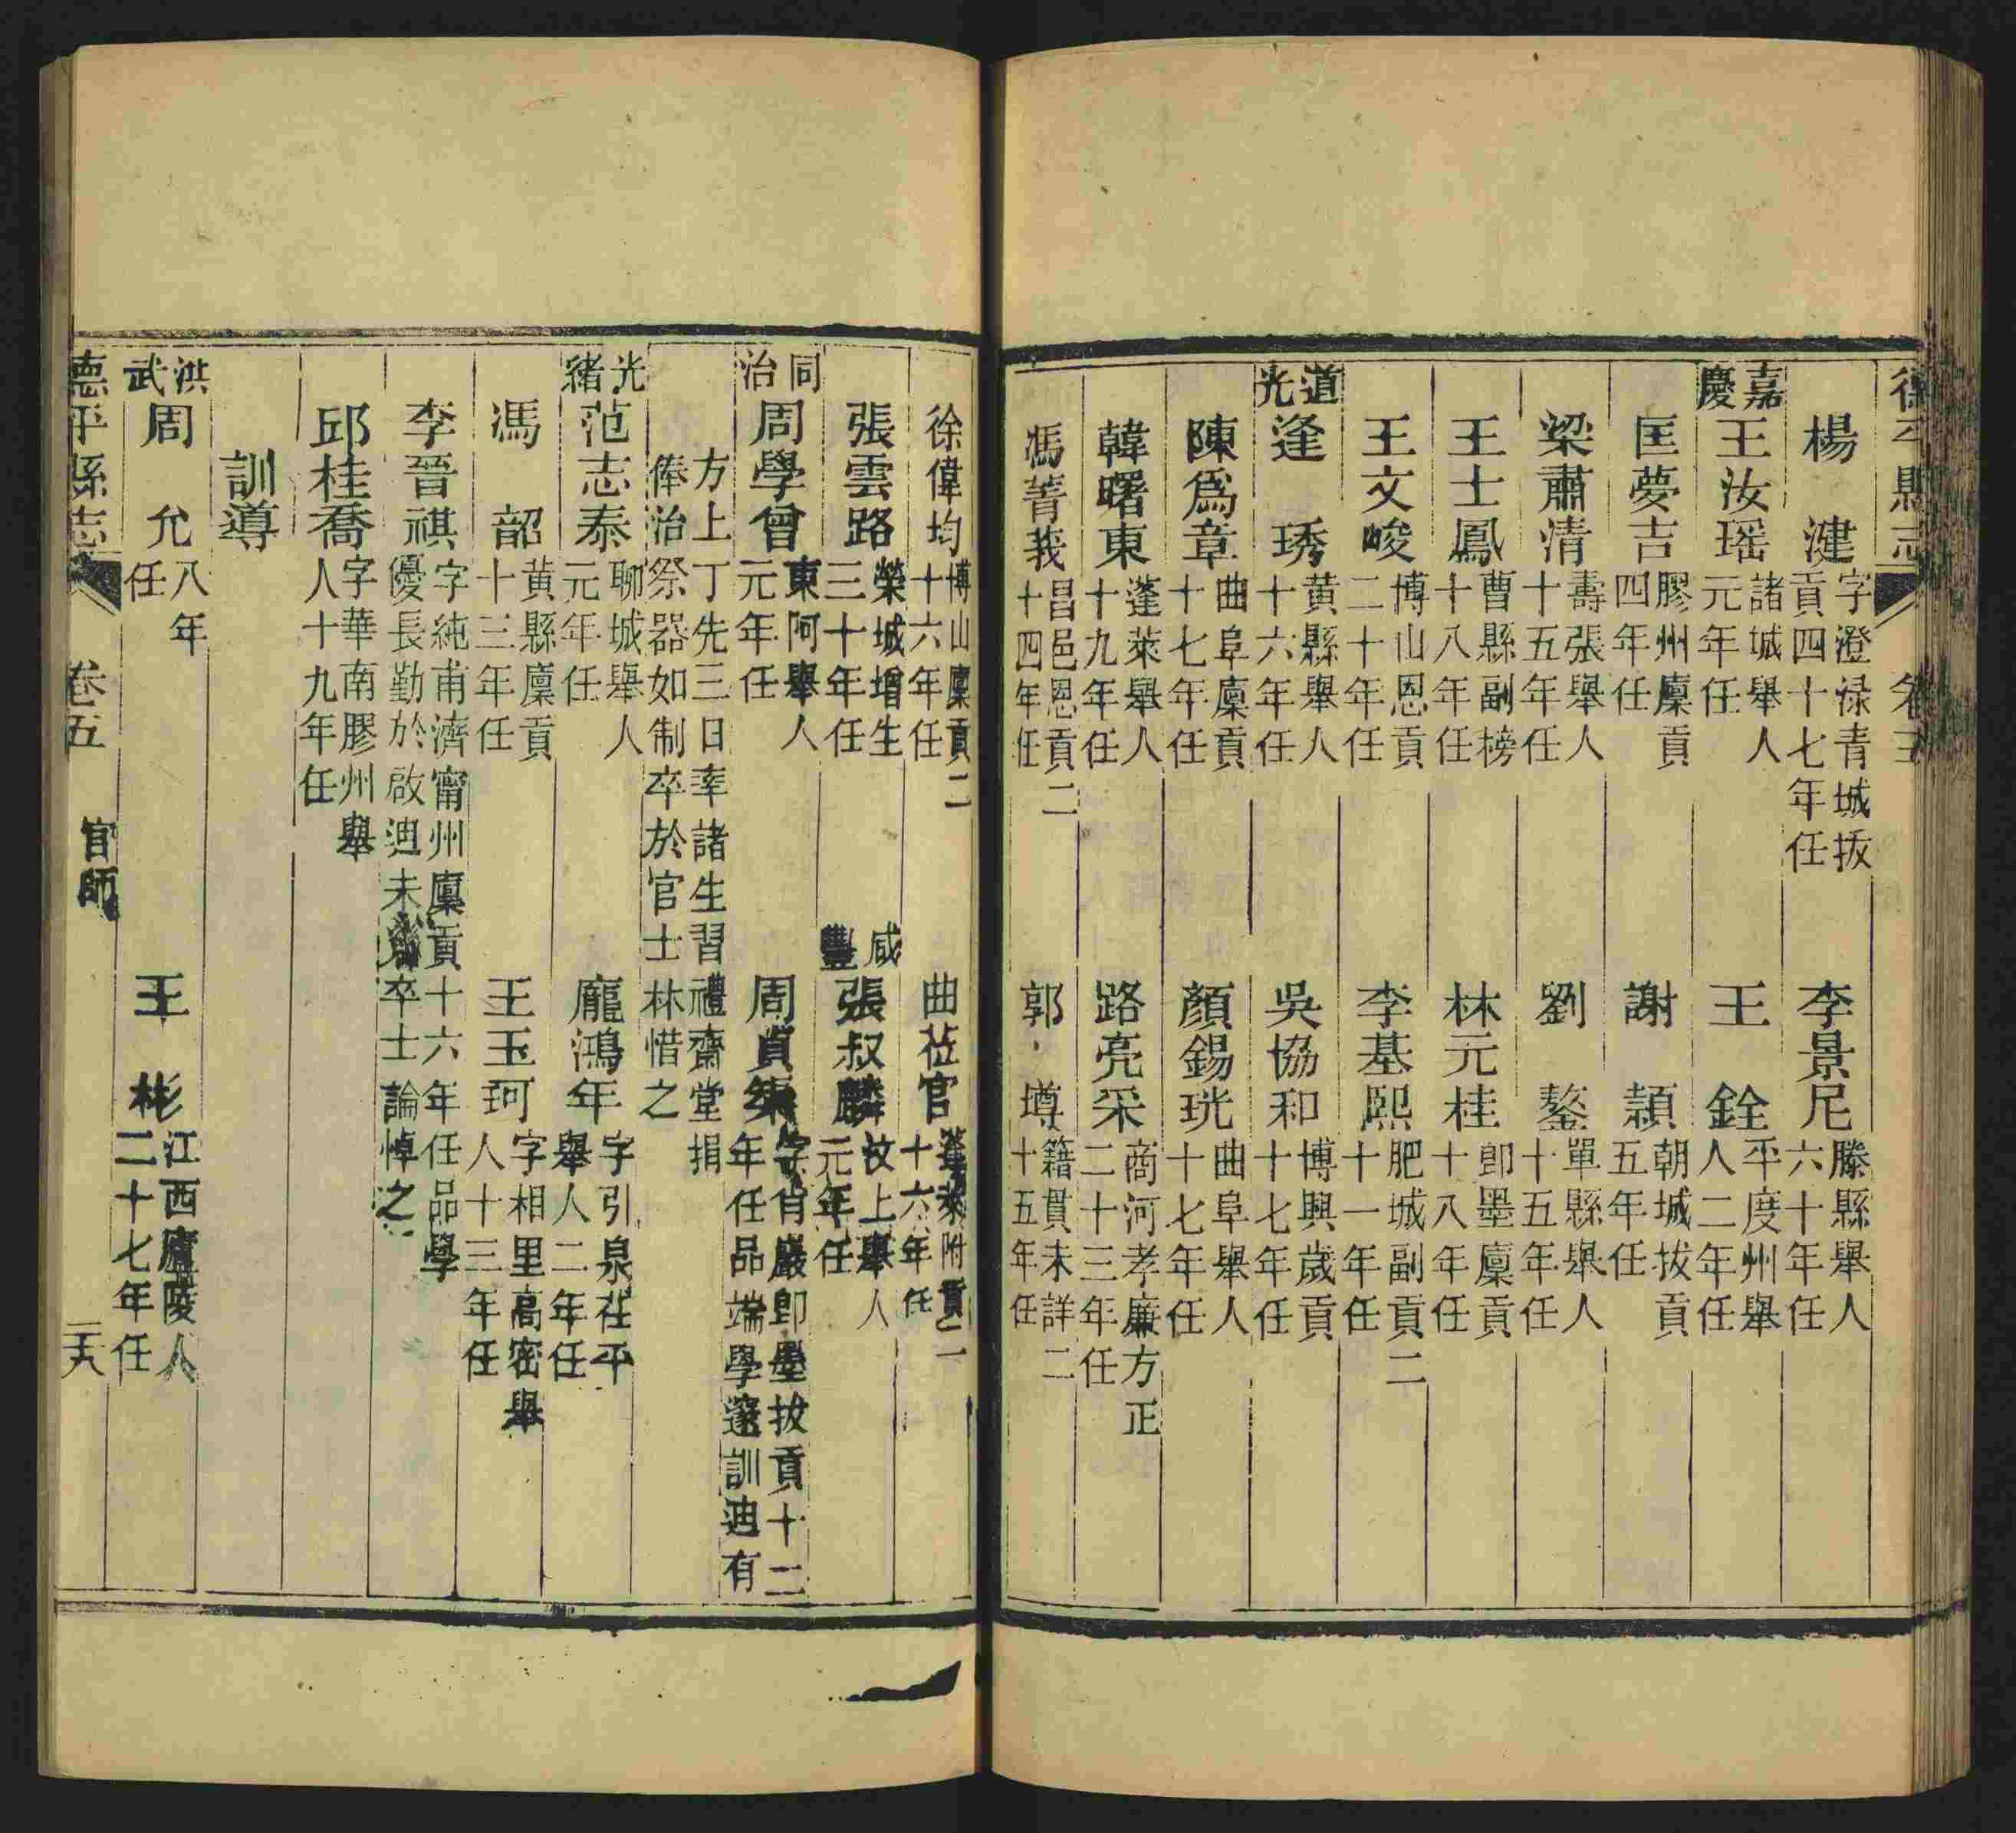 德平縣志 卷五
楊湕 字澄淥青城拔貢四十七年任 李景尼 滕縣舉人六十年任
嘉慶 王汝瑶 諸城舉人元年任 王銓 平度州舉人二年任
匡夢吉 膠州廩貢四年任 謝頴 朝城拔貢五年任
梁肅清 壽張舉人十五年任 劉鏊 單縣舉人十五年任
王士鳳 曹縣副榜十八年任 林元桂 卽墨廩貢十八年任
王文峻 博山恩貢二十年任 李基熙 肥城副貢二十一年任
道光 逄琇 黃縣舉人十六年任 吳協和 博興歲貢十七年任
陳爲章 曲阜廩貢十七年任 顏錫珖 曲阜舉人十七年任
韓曙東 蓬萊舉人十九年任 路亮采 商河孝廉方正二十三年任
馮菁莪 昌邑恩貢二十四年任 郭墫 籍貫未詳二十五年任
徐偉均 博山廩貢二十六年任 曲莅官 蓬萊附貢二十六年任
張雲路 榮城增生三十年任 咸豐 張叔麟 汶上舉人元年任
同治 周學曾 東阿舉人元年任 周貞 字肖巖卽墨拔貢十二年任品端學邃訓迪有
方上丁先三日率諸生習禮齋堂捐俸治祭器如制卒於官士林惜之
光緒 范志泰 聊城舉人元年任 龐鴻年 字引泉茌平舉人二年任
馮韶 黃縣廩貢十三年任 王玉珂 字相里高密舉人十三年任
李晉祺 字純甫濟甯州廩貢十六年任品學優長勤於啟迪未卒士論悼之
邱桂喬 字華南膠州舉人十九年任
訓導
洪武 周允 八年任 王彬 江西廬陵人二十七年任
德平縣志 卷五 官師 二十六